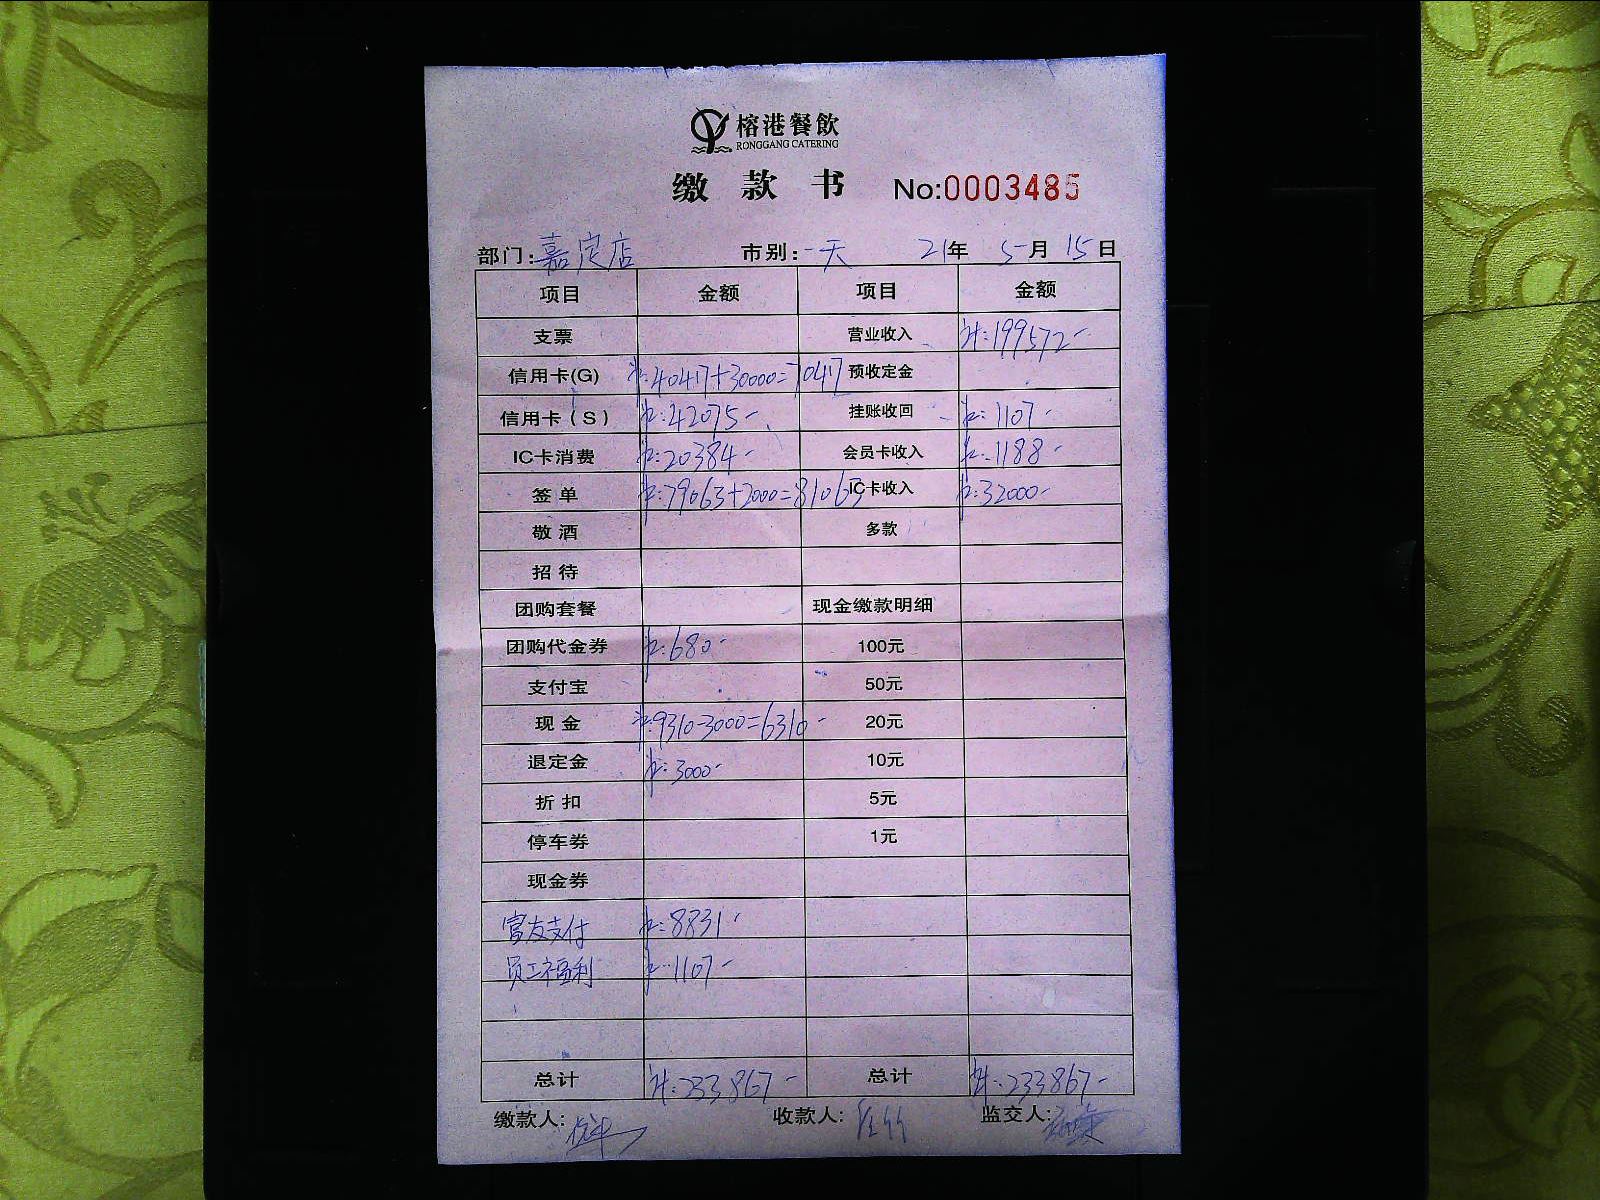 榕港餐飲
RONGGANG CATERING
缴款书 No:0003485
部门:嘉定店 市别:一天 21年 5月 15日
项目 金额 项目 金额
支票 营业收入 计:199572-
信用卡(G) 计:40417+30000=70417 预收定金
信用卡(S) 计:42075- 挂账收回 计:1107-
IC卡消费 计:20384- 会员卡收入 计:1188-
签单 计:79063+2000=81063 IC卡收入 计:32000-
敬酒 多款
招待
团购套餐 现金缴款明细
团购代金券 计:680- 100元
支付宝 50元
现金 计:9310-3000=6310- 20元
退定金 计:3000- 10元
折扣 5元
停车券 1元
现金券
富友支付 计:8831-
员工福利 计:1107-
总计 计:233867- 总计 计:233867-
缴款人: 收款人: 监交人: